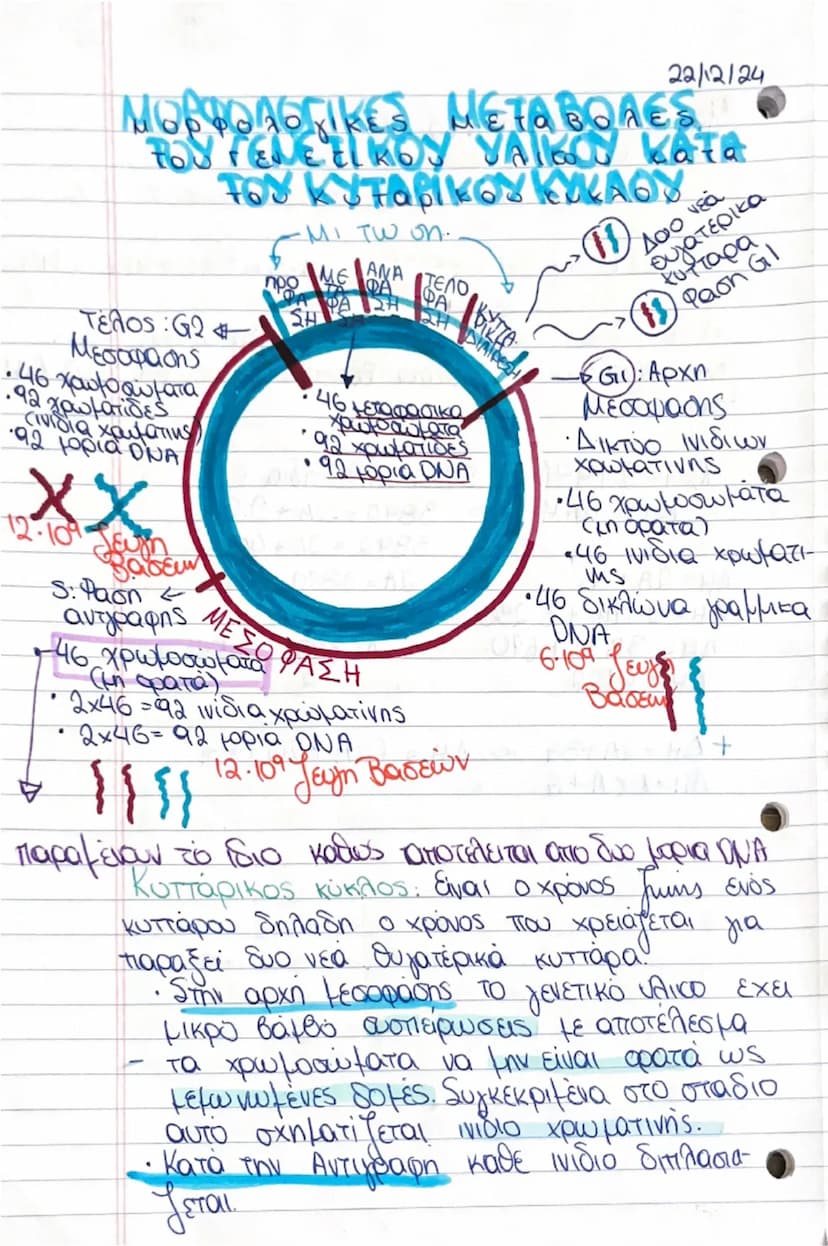 22/12/24
ΜΟΡΦΟΛΟΓΙΚΕΣ ΜΕΤΑΒΟΛΕΣ
ΤΟΥ ΓΕΝΕΤΙΚΟΥ ΥΛΙΚΟΥ ΚΑΤΑ
ΤΟΥ ΚΥΤΑΡΙΚΟΥ ΚΥΚΛΟΥ
ΜΙΤΩΣΗ.
ΠΡΟ
ΦΑ
ΣΗ
ΜΕ
ΤΑ
ΦΑ
ΣΗ
ΑΝΑ
ΦΑ
ΣΗ
ΤΕΛΟ
ΦΑ
ΣΗ
ΚΥΤΑ
ΡΙΚΗ
ΔΙΑΙΡΕΣΗ
Δυο νεά
θυγατερικα
κυτταρα
Φαση G1
Τέλος: G2
Μεσοφασης
• 46 χρωμοσώματα
• 92 χρωματιδες
(ινιδια χρωματινης)
• 92 μορια DNA
12·10⁹ ζευγη
Βασεων
• 46 μεταφασικα
χρωμοσωματα
• 92 χρωματιδες
• 92 μορια DNA
G1: Αρχη
Μεσοφασης
• Δικτυο ινιδιων
χρωματινης
• 46 χρωμοσωματα
(μη ορατα)
• 46 ινιδια χρωματι-
νης
• 46 δικλωνα γραμμικα
DNA
6·10⁹ ζευγη
Βασεων
S: Φαση
αντιγραφης
ΜΕΣΟΦΑΣΗ
46 χρωμοσώματα
(μη ορατά)
• 2x46 = 92 ινίδια χρωματίνης
• 2x46 = 92 μορια DNA
12·10⁹ ζευγη Βασεών
παραμένουν το ίδιο καθώς αποτέλειται απο δυο μορια DNA
Κυττάρικος κύκλος: Είναι ο χρόνος ζωής ενός
κυττάρου δηλαδη ο χρόνος που χρειάζεται για
παραξεί δυο νεά θυγατέρικά κυττάρα.
• Στην αρχή μεσοφάσης το γενετικό υλικο εχει
μικρο βαμθό συσπείρωσεις με αποτέλεσμα
– τα χρωμοσώματα να μην είναι ορατά ως
μεμωνωμένες δομές. Συγκεκριμένα στο σταδιο
αυτό σχηματίζεται ινίδιο χρωματινής.
• Κατά την Αντιγραφη καθε ινιδιο διπλασια-
ζεται.